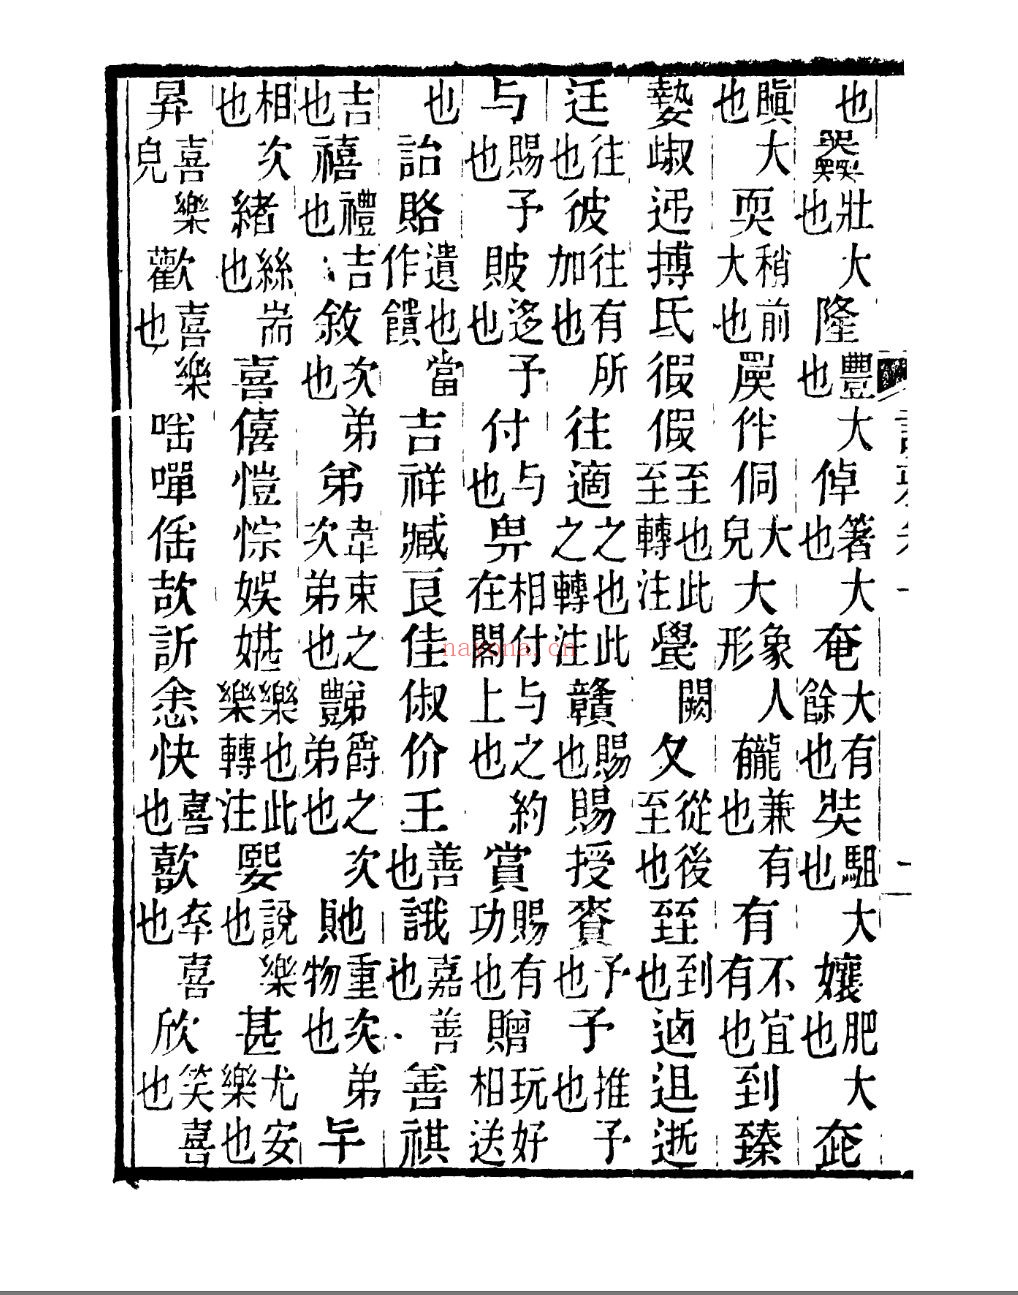 也奰壯大也隆豐大也倬箸大也奄大有餘也奘駔大也孃肥大也奃
瞋大也耎稍前大也伴侗大皃大象人形龓兼有也有不宜有也到臻
摯埱迡摶氐徦假至也此至轉注闕夂從後至也臸到也迌逝
迋往也彼往有所加也往適之也此之轉注贛賜也賜授賚予也予推予也
与賜予也貱迻予也付与也畀相付与之約在閣上也賞賜有功也贈玩好相送
也詒賂遺也當作饋吉祥臧良佳俶价王善也誐嘉善也善祺
吉也禧禮吉也敘次弟也弟韋束之次弟也豑爵之次弟也貤重次弟物也𠂔
相次也緒絲耑也喜僖愷悰娛媅樂也此樂轉注媐說樂也甚尤安樂也
昪喜樂皃歡喜樂也嘽訢悆快喜也歖卒喜也欣笑喜也